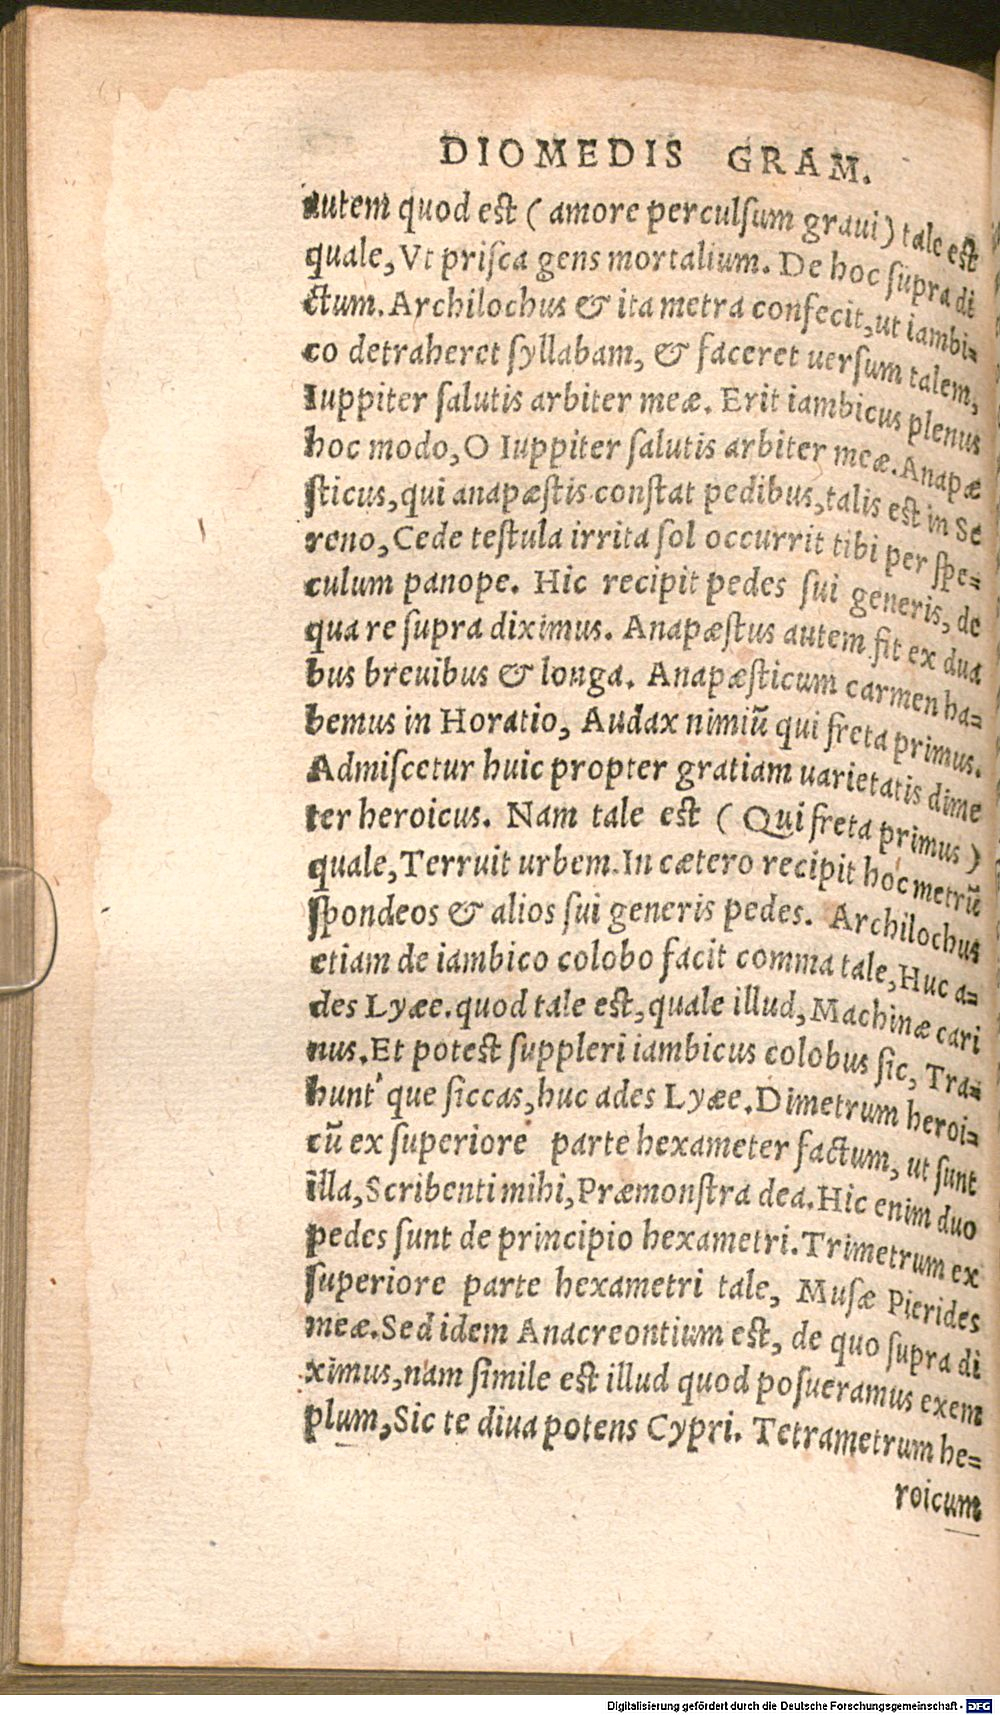 DIOMEDIS GRAM.
autem quod est ( amore perculſum graui) tale est
quale, Vt priſca gens mortalium. De hoc ſupra di
ctum. Archilochus & ita metra confecit, ut iambi=
co detraheret ſyllabam, & faceret uerſum talem,
Iuppiter ſalutis arbiter meæ. Erit iambicus plenus
hoc modo, O Iuppiter ſalutis arbiter meæ. Anapæ
ſticus, qui anapæſtis conſtat pedibus, talis est in Se
reno, Cede teſtula irrita ſol occurrit tibi per ſpe=
culum panope. Hic recipit pedes ſui generis, de
qua re ſupra diximus. Anapæſtus autem fit ex dua
bus breuibus & longa. Anapæſticum carmen ha=
bemus in Horatio, Audax nimiũ qui freta primus.
Admiſcetur huic propter gratiam uarietatis dime
ter heroicus. Nam tale est ( Qui freta primus )
quale, Terruit urbem. In cætero recipit hoc metrũ
ſpondeos & alios ſui generis pedes. Archilochus
etiam de iambico colobo facit comma tale, Huc a=
des Lyæe. quod tale est, quale illud, Machinæ cari
nus. Et potest ſuppleri iambicus colobus ſic, Tra=
hunt' que ſiccas, huc ades Lyæe. Dimetrum heroi=
cũ ex ſuperiore parte hexameter factum, ut ſunt
illa, Scribenti mihi, Præmonſtra dea. Hic enim duo
pedes ſunt de principio hexametri. Trimetrum ex
ſuperiore parte hexametri tale, Muſæ Pierides
meæ. Sed idem Anacreontium est, de quo ſupra di
ximus, nam ſimile est illud quod poſueramus exem
plum, Sic te diua potens Cypri. Tetrametrum he=
roicum
Digitalisierung gefördert durch die Deutsche Forschungsgemeinschaft - DFG